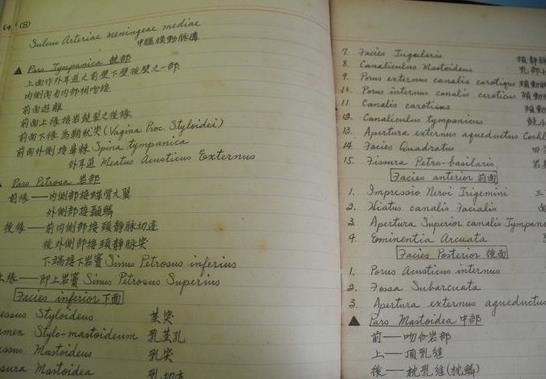 Sulcus Arteriae meningeae mediae
中腦膜動脈溝
▲ Pars Tympanica 鼓部
上面作外耳道之前壁下壁後壁之一部
前面遊離
前面下緣為鞘狀突 (Vagina Proc. Styloidei)
前面外側接鼓棘 Spina tympanica
外耳道 Meatus Acusticus Externus
▲ Pars Petrosa 岩部
前緣——內側部接蝶骨大翼
外側部接顳鱗
後緣——前內側部接頸靜脈切迹
後外側部接頸靜脈突
下端接下岩竇 Sinus Petrosus inferius
上緣——即上岩竇 Sinus Petrosus Superius
Facies inferior 下面
Styloideus 莖突
Stylo-mastoideum 乳莖孔
Mastoideus 乳突
Mastoidea
7. Facies Jugularis
8. Canaliculus Mastoideus
9. Porus externus canalis carotiqus
10. Porus internus canalis caroticus
11. Canalis caroticus
12. Canaliculus tympanicus
13. Apertura externus aqueductus
14. Facies Quadratus
15. Fissura Petro-basilaris
Facies anterior 前面
1. Impressio Nervi Trigemini
2. Hiatus canalis Facialis
3. Apertura Superior canalis
4. Eminentia Arcuata
Facies Posterior 後面
1. Porus Acusticus internus
2. Fossa Subarcuata
3. Apertura externus
▲ Pars Mastoidea 乳部
前——吻合岩部
上——頂乳縫
後——枕乳縫(枕鱗)